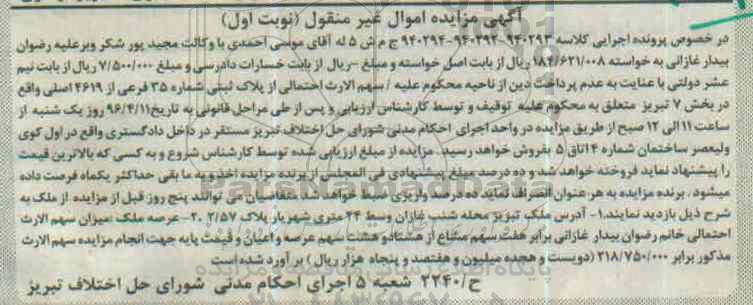 آگهی مزایده اموال غیر منقول (نوبت اول)
در خصوص پرونده اجرایی کلاسه ۹۴۰۲۹۳-۹۴۰۲۹۲-۹۴۰۲۹۴ ج م ش ۵ له آقای موسی احمدی با وکالت مجید پور شکر وبرعلیه رضوان
بیدار غازانی به خواسته ۱۸۴/۶۲۱/۰۰۸ ریال از بابت اصل خواسته و مبلغ -ریال از بابت خسارات دادرسی و مبلغ ۷/۵۰۰/۰۰۰ ریال از بابت نیم
عشر دولتی با عنایت به عدم پرداخت دین از ناحیه محکوم علیه / سهم الارث احتمالی از پلاک ثبتی شماره ۳۵ فرعی از ۴۶۱۹ اصلی واقع
در بخش ۷ تبریز متعلق به محکوم علیه توقیف و توسط کارشناس ارزیابی و پس از طی مراحل قانونی به تاریخ ۹۶/۴/۱۱ روز یک شنبه از
ساعت ۱۱ الی ۱۲ صبح از طریق مزایده در واحد اجرای احکام مدنی شورای حل اختلاف تبریز مستقر در داخل دادگستری واقع در اول کوی
ولیعصر ساختمان شماره ۲ اتاق ۵ بفروش خواهد رسید. مزایده از مبلغ ارزیابی شده توسط کارشناس شروع و به کسی که بالاترین قیمت
را پیشنهاد نماید فروخته خواهد شد و ده درصد مبلغ پیشنهادی فی المجلس از برنده مزایده اخذ و به ما بقی حداکثر یکماه فرصت داده
میشود . برنده مزایده به هر عنوان انصراف نماید ده درصد واریزی ضبط خواهد شد متقاضیان می توانند پنج روز قبل از مزایده از ملک به
شرح ذیل بازدید نمایند.۱- آدرس ملک تبریز محله شنب غازان وسط ۲۴ متری شهریار پلاک ۲/۵۷ ۲۰- عرصه ملک :میزان سهم الارث
احتمالی خانم رضوان بیدار غازانی برابر هفت سهم مشاع از هشتادو هشت سهم عرصه و اعیان و قیمت پایه جهت انجام مزایده سهم الارث
مذکور برابر ۲۱۸/۷۵۰/۰۰۰ (دویست و هجده میلیون و هفتصد و پنجاه هزار ریال ) بر آورد شده است
ح/۲۲۴۰ شعبه ۵ اجرای احکام مدنی شورای حل اختلاف تبریز